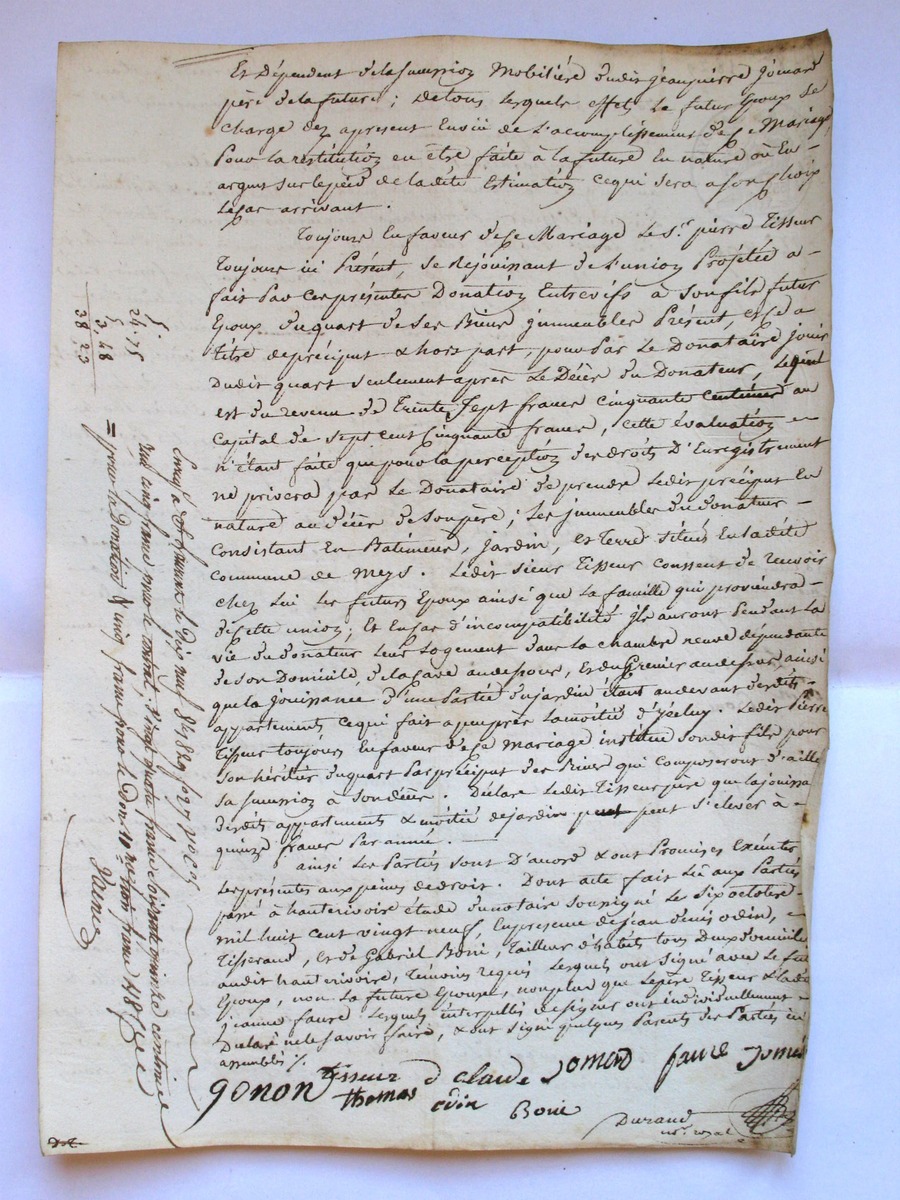 Et Dépendent de la succession Mobilière dudit jean pierre jomard
père de la future ; de tous lesquels effets Le futur Epoux se
charge dez apresent Ensüi de l'accomplissement de Ce Mariage
Pour la restitution en être faite à la future En nature où En
argens sur le pied de ladite Estimation ce qui sera a son choix
le cas arrivant.
Toujours En faveur de Ce Mariage Le Sr. pierre Tisseur
Toujours ici Présent, se Rejouissant de L'union Projétée a
fait Par Ces présentes Donation Entrevifs à son fils futur
Epoux du quart de Ses Biens jmmeubles Présent, et Ce a
Titre de préciput & hors part, pour Par Le Donataire jouir
Dudit quart seulement après Le Décès du Donateur, Lequel
est du revenu de Trente Sept francs Cinquante Centimes au
Capital de sept cent Cinquante francs, cette évaluation
n'étant faite que pour la perception des droits D'Enregistrement
ne privera pas Le Donataire de prendre Ledit préciput En
nature au décès de Son père ; Les jmmeubles du donateur
Consistant En Batimens, jardin, et Terre situés En ladite
Commune de Meys. Ledit Sieur Tisseur Consent de recevoir
chez lui les futurs Epoux ainsi que La famille qui proviendra
de Cette union ; Et En Cas d'incompatibilité ils auront Pendant la
vie du donateur Leur Logement dans la chambre neuve dépendante
de son Domicile, de la Cave au dessous, Et du Grenier au dessus ainsi
que la jouissance d'une Partie du jardin étant au devant desdits
appartements ce qui fait apeuprès La moitié d'jcelui. Ledit Pierre
Tisseur toujours En faveur de Ce mariage institue Son dit fils pour
Son héritier du quart Par préciput des Biens qui Composeront
Sa succession à Son décès. Déclare Ledit Tisseur père que la jouissa
desdits appartements & moitié de jardin peut s'elever à
quinze francs Par année.
ainsi Les Parties sont D'accord & ont Promises Exécuter
Les présentes aux peines de droit. Dont acte fait Lu aux Parties
passé à hauterivoire étude du notaire Soussigné Le Six octobre
mil huit cent vingt neuf, En présence de jean denis odin,
Tisserand, Et de Gabriel Boni, Tailleur d'habits tous Deux domiciliés
audit hauterivoire, Témoins requis Lesquels ont Signé avec Le futur
Epoux, non La future Epouse, non plus que Le père Tisseur & ladite
jeanne faure Lesquels interpellés de signer ont individuellement
Déclaré ne le savoir faire, & ont Signé quelques Parents des Parties ici
assemblés ./.
gonon Tisseur d claude jomard faure jomard
thomas odin Boni
Durand
not. royal
5
24. 75
5
3. 48
38 23